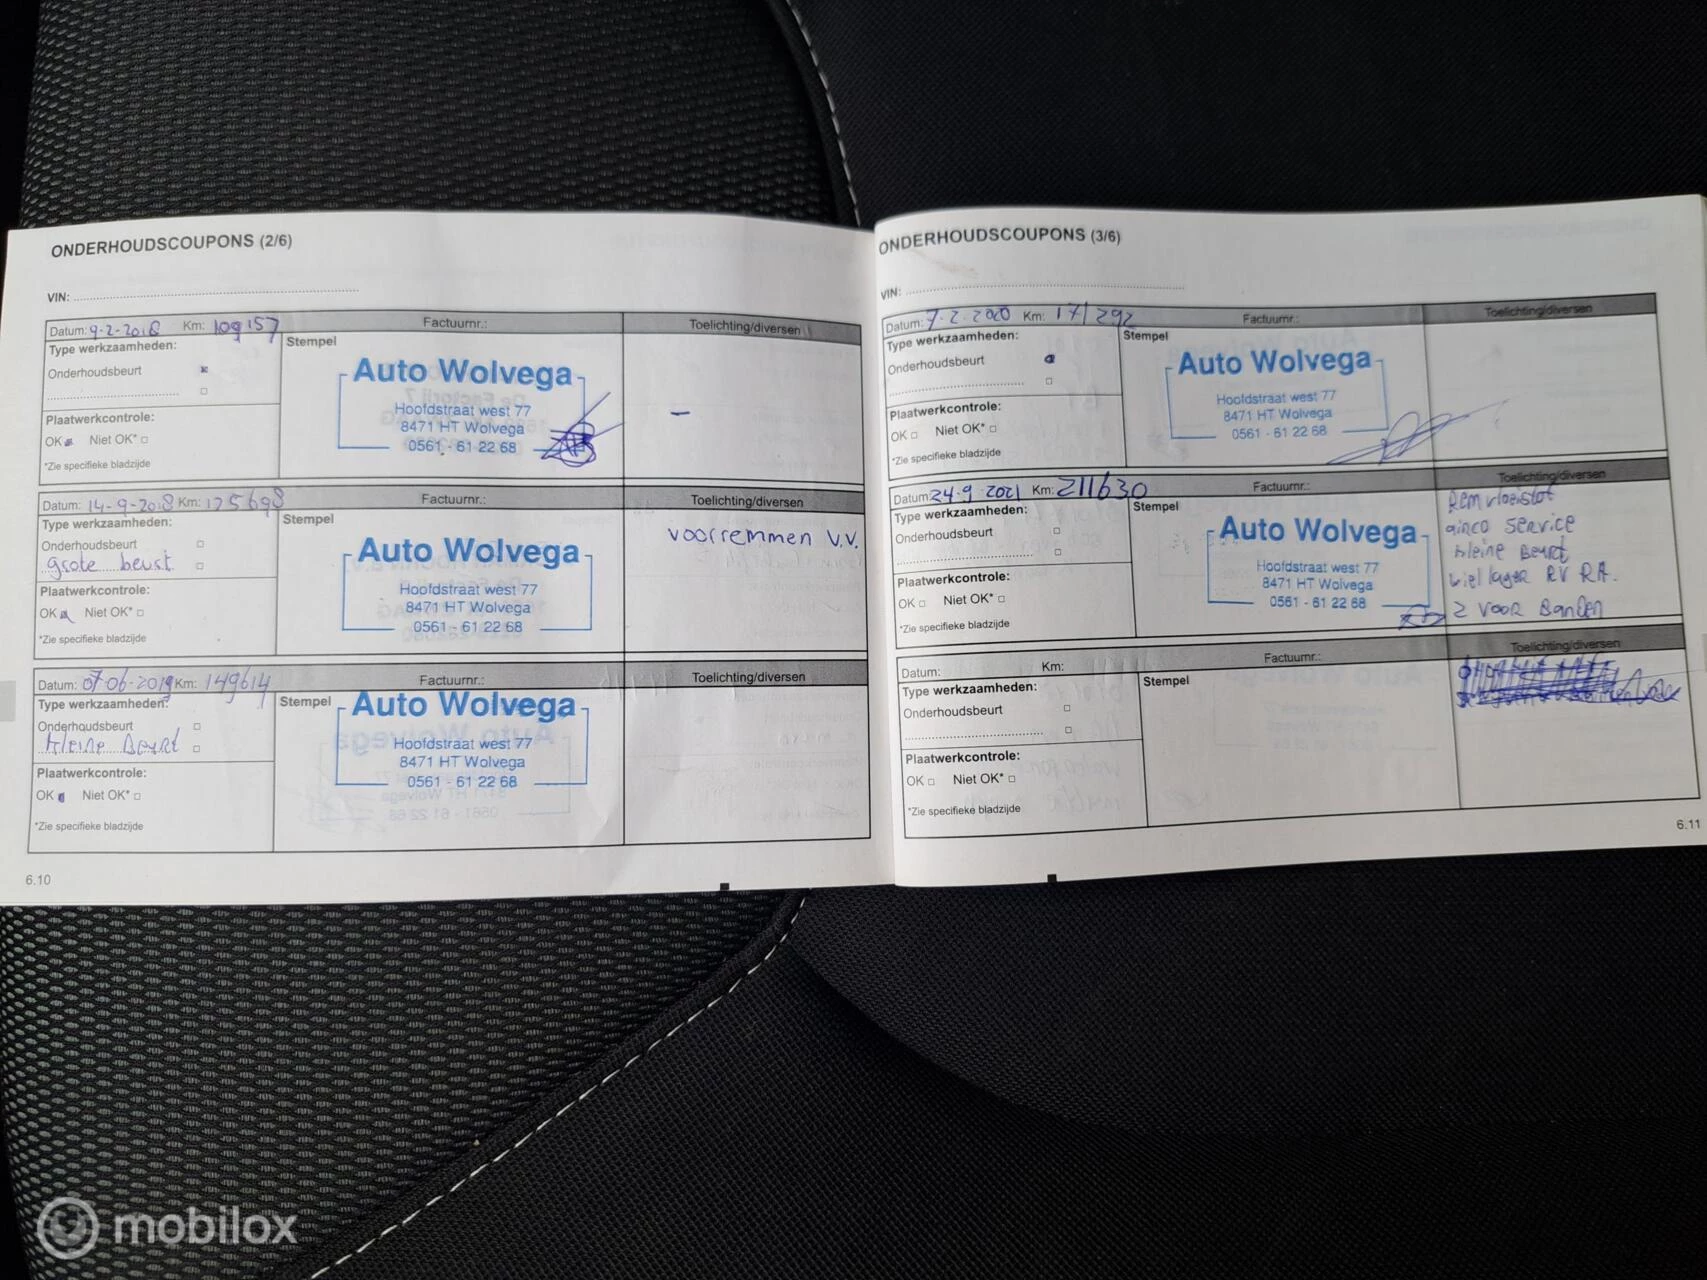 ONDERHOUDSCOUPONS (2/6)
VIN:
Datum: 9-2-2018 Km: 109157 Factuurnr.: Toelichting/diversen
Type werkzaamheden: Stempel
Onderhoudsbeurt
Plaatwerkcontrole:
OK Niet OK*
*Zie specifieke bladzijde
Auto Wolvega
Hoofdstraat west 77
8471 HT Wolvega
0561 - 61 22 68
-
Datum: 14-9-2018 Km: 125698 Factuurnr.: Toelichting/diversen
Type werkzaamheden: Stempel
Onderhoudsbeurt
grote beurt
Plaatwerkcontrole:
OK Niet OK*
*Zie specifieke bladzijde
Auto Wolvega
Hoofdstraat west 77
8471 HT Wolvega
0561 - 61 22 68
voorremmen v.v.
Datum: 07-06-2019 Km: 149614 Factuurnr.: Toelichting/diversen
Type werkzaamheden: Stempel
Onderhoudsbeurt
kleine Beurt
Plaatwerkcontrole:
OK Niet OK*
*Zie specifieke bladzijde
Auto Wolvega
Hoofdstraat west 77
8471 HT Wolvega
0561 - 61 22 68
6.10
ONDERHOUDSCOUPONS (3/6)
VIN:
Datum: 7-2-2020 Km: 171292 Factuurnr.: Toelichting/diversen
Type werkzaamheden: Stempel
Onderhoudsbeurt
Plaatwerkcontrole:
OK Niet OK*
*Zie specifieke bladzijde
Auto Wolvega
Hoofdstraat west 77
8471 HT Wolvega
0561 - 61 22 68
Datum: 24-9-2021 Km: 211630 Factuurnr.: Toelichting/diversen
Type werkzaamheden: Stempel
Onderhoudsbeurt
Plaatwerkcontrole:
OK Niet OK*
*Zie specifieke bladzijde
Auto Wolvega
Hoofdstraat west 77
8471 HT Wolvega
0561 - 61 22 68
Remvloeistof
airco service
kleine Beurt
wiellager RV RA.
2 voor Banden
Datum: Km: Factuurnr.: Toelichting/diversen
Type werkzaamheden: Stempel
Onderhoudsbeurt
Plaatwerkcontrole:
OK Niet OK*
*Zie specifieke bladzijde
6.11
mobilox